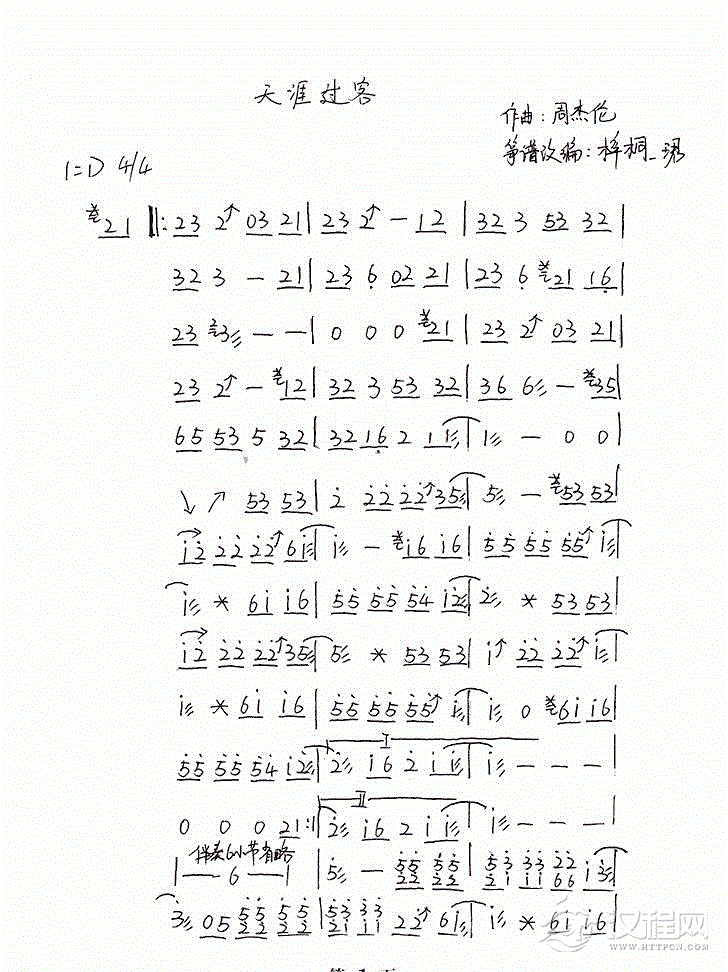 天涯过客
作曲:周杰伦
筝谱改编:梓桐_琇
1=D 4/4
21 ‖: 23 2↗ 03 21 | 23 2↗ - 12 | 32 3 53 32 |
32 3 - 21 | 23 6 02 21 | 23 6 21 16 |
23 3 - - | 0 0 0 21 | 23 2↗ 03 21 |
23 2↗ - 12 | 32 3 53 32 | 36 6 - 35 |
65 53 5 32 | 3216 2 11 | 1 - 0 0 |
↘ ↗ 53 53 | 2 22 22↗ 35 | 5 - 53 53 |
12 22 22↗ 61 | 1 - 16 16 | 55 55 55↗ 1 |
1 * 61 16 | 55 55 54 12 | 2 * 53 53 |
12 22 22↗ 35 | 5 * 53 53 | 1↗ 22 22↗ 1 |
1 * 61 16 | 55 55 55↗ 1 | 1 0 61 16 |
I
55 55 54 12 | 2 16 2 11 | 1 - - - |
II
0 0 0 21 :| 2 16 2 11 | 1 - - - |
伴奏6小节省略
|— 6 —| 5 - 55 55 | 53 33 22 13 |
22 22 21 11 66
3 05 55 55 | 53 33 22↗ 61 | 1 * 61 16 |
22 22 21 11
汉程网
WWW.HTTPCN.COM